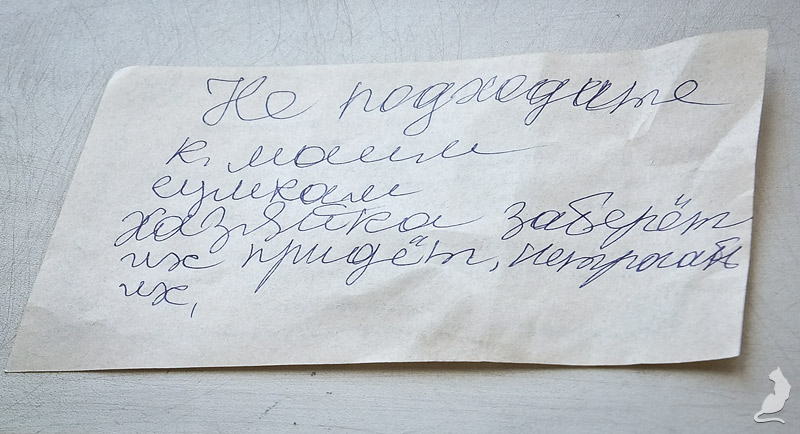 Не подходате
к, маим
сумкам
хазяйка заберёт
их придёт, нетрогать
их,